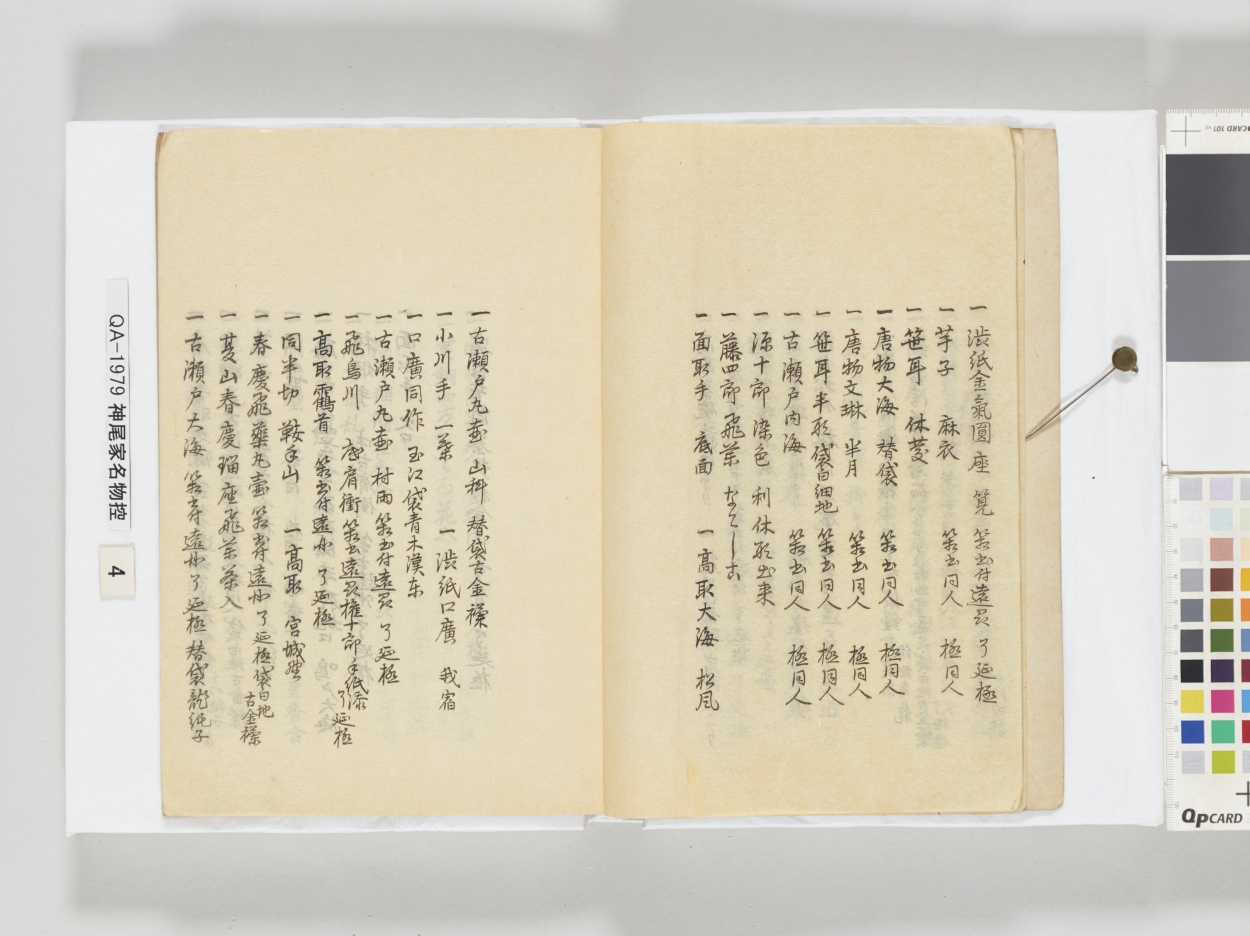 一 渋紙金氣圓座 筧 箱書付遠州 了延極
一 芋子 麻衣 箱書同人 極同人
一 笹耳 休菱
一 唐物大海 替袋 箱書同人 極同人
一 唐物文琳 半月 箱書同人 極同人
一 笹耳 半形 袋白細地 箱書同人 極同人
一 古瀬戸内海 箱書同人 極同人
一 源十郎 染色 利休形出来
一 藤四郎 飛茶
一 面取手 底面 一 高取大海 松風
一 古瀬戸丸壷 山科 替袋古金襴
一 小川手 一葉 一 渋紙口廣 我宿
一 口廣同作 玉江 袋青木漢东
一 古瀬戸丸壷 村雨 箱書付遠州 了延極
一 飛鳥川 底肩衝 箱書遠州 権十郎手紙添 了延極
一 高取霍首 箱書付遠州 了延極
一 同半切 鞍手山 一 高取 宮城野
一 春慶飛藥丸壷 箱書付遠州 了延極 袋白地古金襴
一 菱山春慶瑠座飛茶茶入
一 古瀬戸大海 箱書付遠州 了延極 替袋龍純子
QA-1979 神尾家名物控
4
QPCARD 101
QPCARD